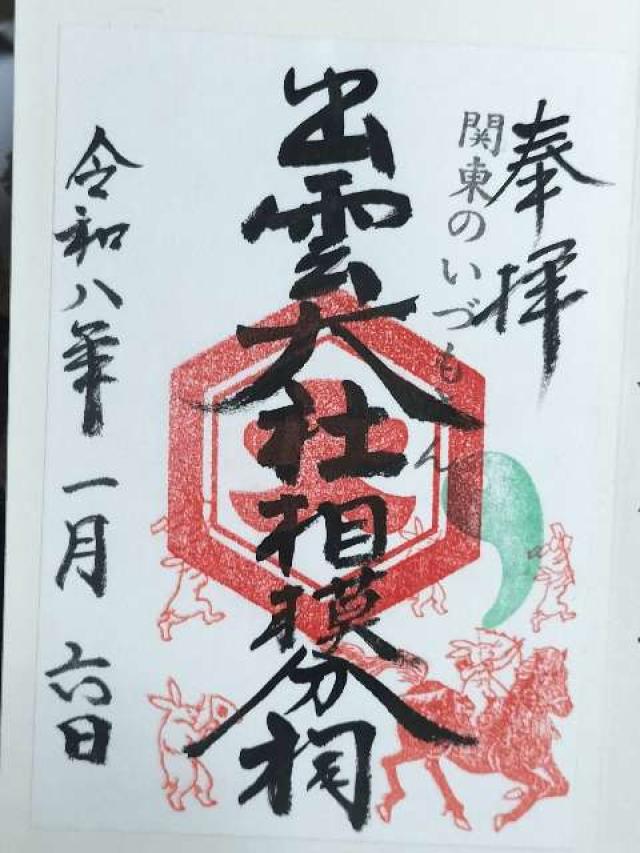 奉拝
関東のいづもさん
出雲大社相模分祠
令和八年一月六日